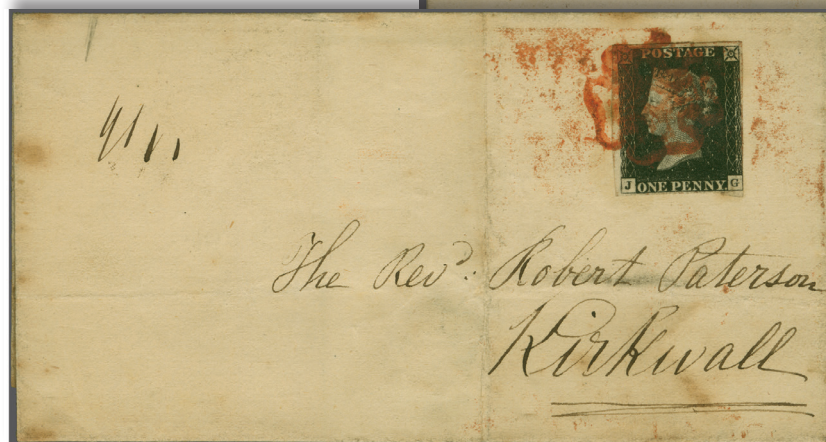 POSTAGE
J ONE PENNY G
The Revd. Robert Paterson
Kirkwall